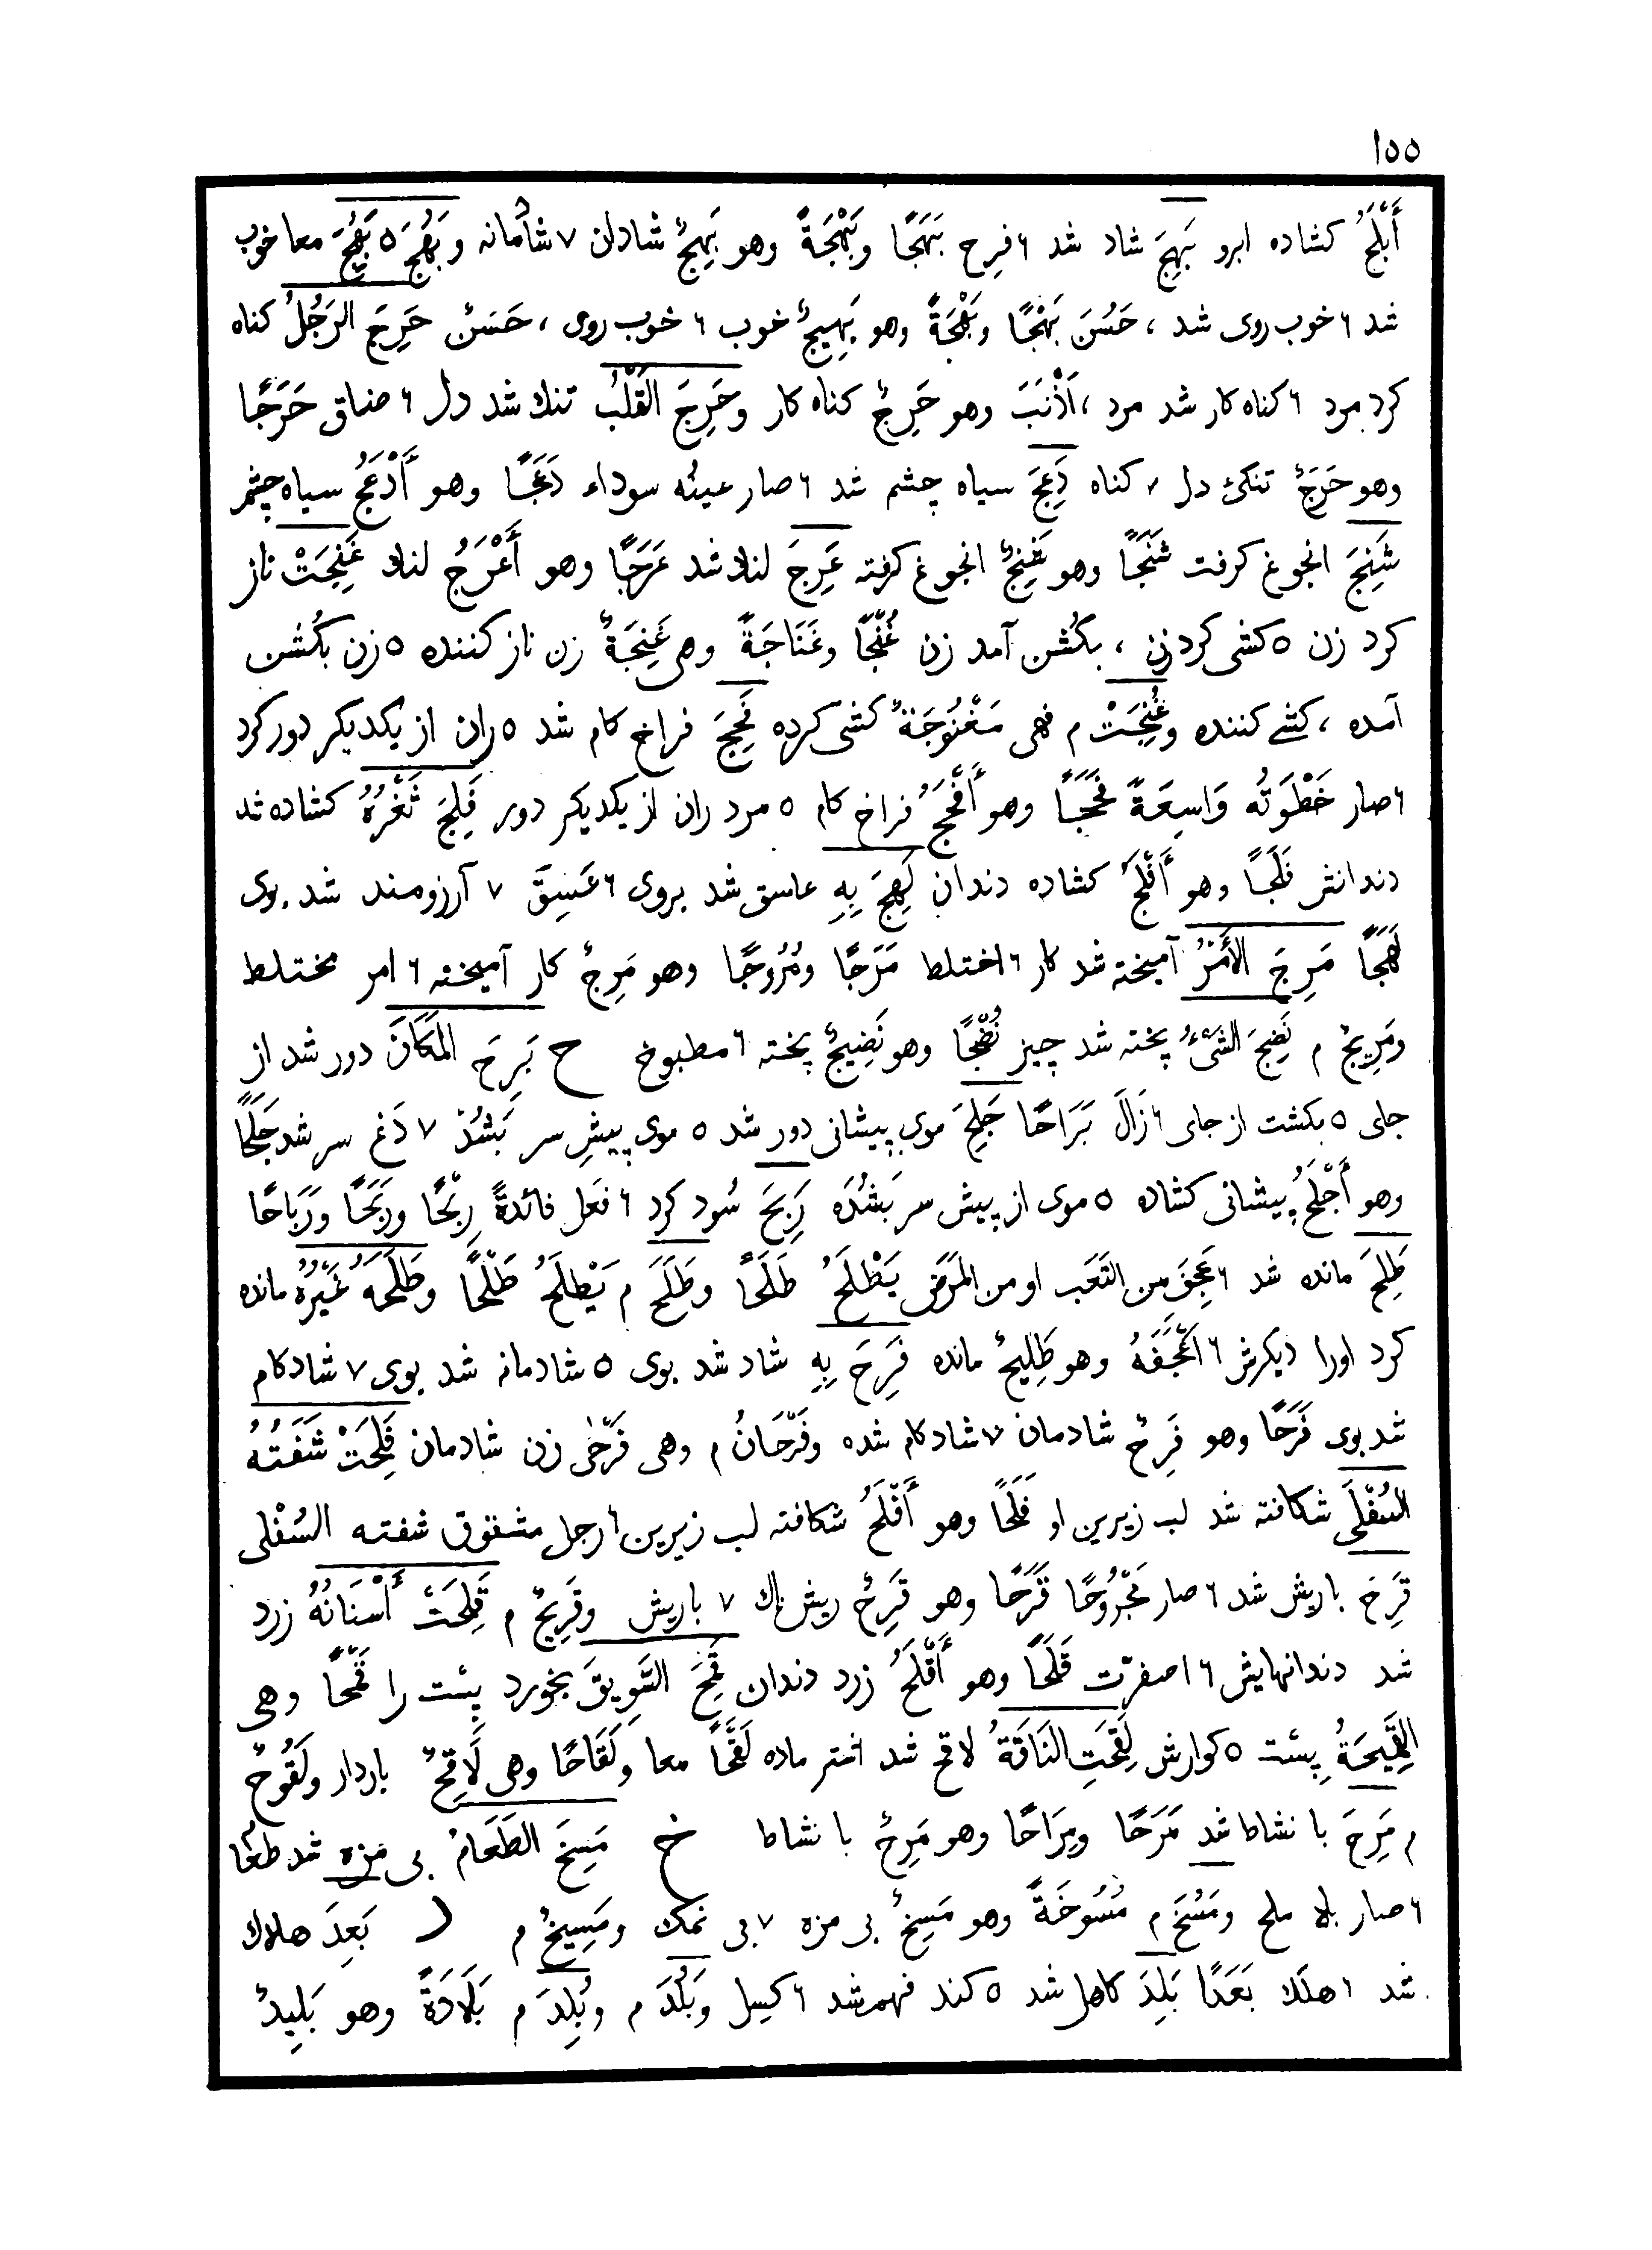 ١٥٥
أَبْلَجُ كشاده ابرو بَهِجَ شاد شد ٦ فرِح بَهَجًا وبَهْجَةً وهو بَهِجٌ شادان ٧ شادمانه وبَهُجَ ٥ بَهِيجٌ معا خوب
شد ٦ خوب روى شد ، حَسُنَ بَهْجًا وبَهْجَةً وهو بَهِيجٌ خوب ٦ خوب روى ، حَسَنٌ حَرِجَ الرَجُلُ كناه
كرد مرد ٦ كناه كار شد مرد ، اَذْنَبَ وهو حَرِجٌ كناه كار وحَرِجَ القَلْبُ تنك شد دل ٦ ضاق حَرَجًا
وهو حَرَجٌ تنكئ دل ، كناه دَعِجَ سياه چشم شد ٦ صار عينُه سوداء دَعَجًا وهو أَدْعَجُ سياه چشم
شَنِجَ انجوغ كرفت شَنَجًا وهو شَنِجٌ انجوغ كرفته عَرِجَ لنك شد عَرَجًا وهو أَعْرَجُ لنك غَنِجَتْ ناز
كرد زن ٥ كشى كرد زن ، بكُشن آمد زن غُنْجًا وغَنَاجَةً وهى غَنِجَةٌ زن ناز كننده ٥ زن بكُشن
آمده ، كشے كننده وغُنِجَتْ م فهى مَغْنُوجَةٌ كشى كرده فَحِجَ فراخ كام شد ٥ ران از يكديكر دور كرد
٦ صار خَطْوَتُه وَاسِعَةً فَحَجًا وهو أَفْحَجُ فراخ كام ٥ مرد ران از يكديكر دور فَلِجَ ثَغْرُهُ كشاده شد
دندانش فَلَجًا وهو أَفْلَجُ كشاده دندان لَهِجَ بِهِ عاسق شد بروى ٦ عَسِقَ ٧ آرزومند شد بوى
لَهَجًا مَرِجَ الأَمْرُ آميخته شد كار ٦ اختلط مَرَجًا ومُرُوجًا وهو مَرِجٌ كار آميخته ٦ امر مختلط
ومَرِيجٌ م نَضِجَ الشَىْءُ پخته شد چيز نُضْجًا وهو نَضِيجٌ پخته ٦ مطبوخ ح بَرِحَ المَكَانَ دور شد از
جاى ٥ بكشت از جاى ٦ زَالَ بَرَاحًا جَلِحَ موى پيشانى دور شد ٥ موى پيشِ سر بَشُدْ ٧ دَغ سر شد جَلَحًا
وهو أَجْلَحُ پيشانى كشاده ٥ موى از پيش سر بَشُدَه رَبِحَ سُود كرد ٦ فعَل فائدةً رِبْحًا ورَبَحًا ورَبَاحًا
طَلِحَ مانده شد ٦ عَجِفَ مِن التَعَب او من المَرَض يَطْلَحُ طَلَحًا وطَلَحَ م يَطْلَحُ طَلْحًا وطَلَحَهُ غَيْرُهُ مانده
كرد اورا ديكرش ٦ اَعْجَفَهُ وهو طَلِيحٌ مانده فَرِحَ بِهِ شاد شد بوى ٥ شادمانه شد بوى ٧ شادكام
شد بوى فَرَحًا وهو فَرِحٌ شادمان ٧ شادكام شده وفَرْحَانُ م وهى فَرْحٰى زن شادمان فَلِحَتْ شَفَتُهُ
السُفْلَى شكافته شد لب زيرين او فَلَحًا وهو أَفْلَحُ شكافته لب زيرين ٦ رجل مشقوق شفته السُفْلى
قَرِحَ باريش شد ٦ صار مَجْرُوحًا قَرَحًا وهو قَرِحٌ ريش ناك ٧ باريش وقَرِيحٌ م قَلِحَتْ أَسْنَانُهُ زرد
شد دندانهايش ٦ اصفرّت قَلَحًا وهو أَقْلَحُ زرد دندان قَمِحَ السَّوِيقَ بخورد پِسْت را قَمْحًا وهى
القَمِيحَةُ پِسْت ٥ كوارش لَقِحَتِ النَاقَةُ لاقح شد اشتر ماده لَقْحًا معا ولَقَاحًا وهى لَاقِحٌ باردار ولَقُوحٌ
م مَرِحَ با نشاط شد مَرَحًا ومِرَاحًا وهو مَرِحٌ با نشاط خ مَسِخَ الطَعَامُ بى مزه شد طعام
٦ صار بلا ملح ومَسُخَ م مُسُوخَةً وهو مَسِخٌ بى مزه ٧ بى نمك ومَسِيخٌ م د بَعِدَ هلاك
شد ٦ هلك بَعَدًا بَلِدَ كاهل شد ٥ كند فهم شد ٦ كسِل وبَلُدَ م وبُلِدَ م بَلَادَةً وهو بَلِيدٌ